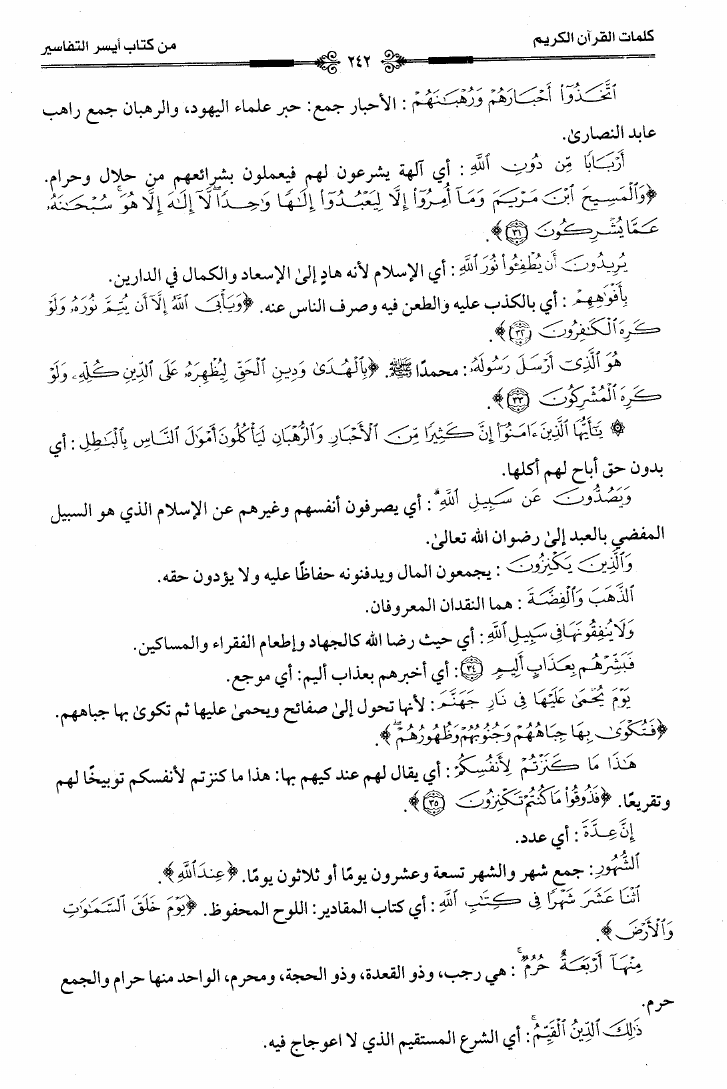 كلمات القرآن الكريم
٢٤٢
من كتاب أيسر التفاسير
اتَّخَذُوا أَحْبَارَهُمْ وَرُهْبَانَهُمْ : الأحبار جمع: حبر علماء اليهود، والرهبان جمع راهب
عابد النصارىٰ.
أَرْبَابًا مِّن دُونِ اللَّهِ : أي آلهة يشرعون لهم فيعملون بشرائعهم من حلال وحرام.
﴿وَالْمَسِيحَ ابْنَ مَرْيَمَ وَمَا أُمِرُوا إِلَّا لِيَعْبُدُوا إِلَٰهًا وَاحِدًا ۖ لَّا إِلَٰهَ إِلَّا هُوَ ۚ سُبْحَانَهُ
عَمَّا يُشْرِكُونَ ٣١﴾.
يُرِيدُونَ أَن يُطْفِئُوا نُورَ اللَّهِ : أي الإسلام لأنه هادٍ إلىٰ الإسعاد والكمال في الدارين.
بِأَفْوَاهِهِمْ : أي بالكذب عليه والطعن فيه وصرف الناس عنه. ﴿وَيَأْبَى اللَّهُ إِلَّا أَن يُتِمَّ نُورَهُ وَلَوْ
كَرِهَ الْكَافِرُونَ ٣٢﴾.
هُوَ الَّذِي أَرْسَلَ رَسُولَهُ : محمدًا ﷺ. ﴿بِالْهُدَىٰ وَدِينِ الْحَقِّ لِيُظْهِرَهُ عَلَى الدِّينِ كُلِّهِ وَلَوْ
كَرِهَ الْمُشْرِكُونَ ٣٣﴾.
۞ يَا أَيُّهَا الَّذِينَ ءَامَنُوا إِنَّ كَثِيرًا مِّنَ الْأَحْبَارِ وَالرُّهْبَانِ لَيَأْكُلُونَ أَمْوَالَ النَّاسِ بِالْبَاطِلِ : أي
بدون حق أباح لهم أكلها.
وَيَصُدُّونَ عَن سَبِيلِ اللَّهِ ۗ : أي يصرفون أنفسهم وغيرهم عن الإسلام الذي هو السبيل
المفضي بالعبد إلىٰ رضوان الله تعالىٰ.
وَالَّذِينَ يَكْنِزُونَ : يجمعون المال ويدفنونه حفاظًا عليه ولا يؤدون حقه.
الذَّهَبَ وَالْفِضَّةَ : هما النقدان المعروفان.
وَلَا يُنفِقُونَهَا فِي سَبِيلِ اللَّهِ : أي حيث رضا الله كالجهاد وإطعام الفقراء والمساكين.
فَبَشِّرْهُم بِعَذَابٍ أَلِيمٍ ٣٤ : أي أخبرهم بعذاب أليم: أي موجع.
يَوْمَ يُحْمَىٰ عَلَيْهَا فِي نَارِ جَهَنَّمَ : لأنها تحول إلىٰ صفائح ويحمىٰ عليها ثم تكوىٰ بها جباههم.
﴿فَتُكْوَىٰ بِهَا جِبَاهُهُمْ وَجُنُوبُهُمْ وَظُهُورُهُمْ ۖ﴾.
هَٰذَا مَا كَنَزْتُمْ لِأَنفُسِكُمْ : أي يقال لهم عند كيهم بها: هذا ما كنزتم لأنفسكم توبيخًا لهم
وتقريعًا. ﴿فَذُوقُوا مَا كُنتُمْ تَكْنِزُونَ ٣٥﴾.
إِنَّ عِدَّةَ : أي عدد.
الشُّهُورِ : جمع شهر والشهر تسعة وعشرون يومًا أو ثلاثون يومًا. ﴿عِندَ اللَّهِ﴾.
اثْنَا عَشَرَ شَهْرًا فِي كِتَابِ اللَّهِ : أي كتاب المقادير: اللوح المحفوظ. ﴿يَوْمَ خَلَقَ السَّمَاوَاتِ
وَالْأَرْضَ﴾.
مِنْهَا أَرْبَعَةٌ حُرُمٌ ۚ : هي رجب، وذو القعدة، وذو الحجة، ومحرم، الواحد منها حرام والجمع
حرم.
ذَٰلِكَ الدِّينُ الْقَيِّمُ ۚ : أي الشرع المستقيم الذي لا اعوجاج فيه.